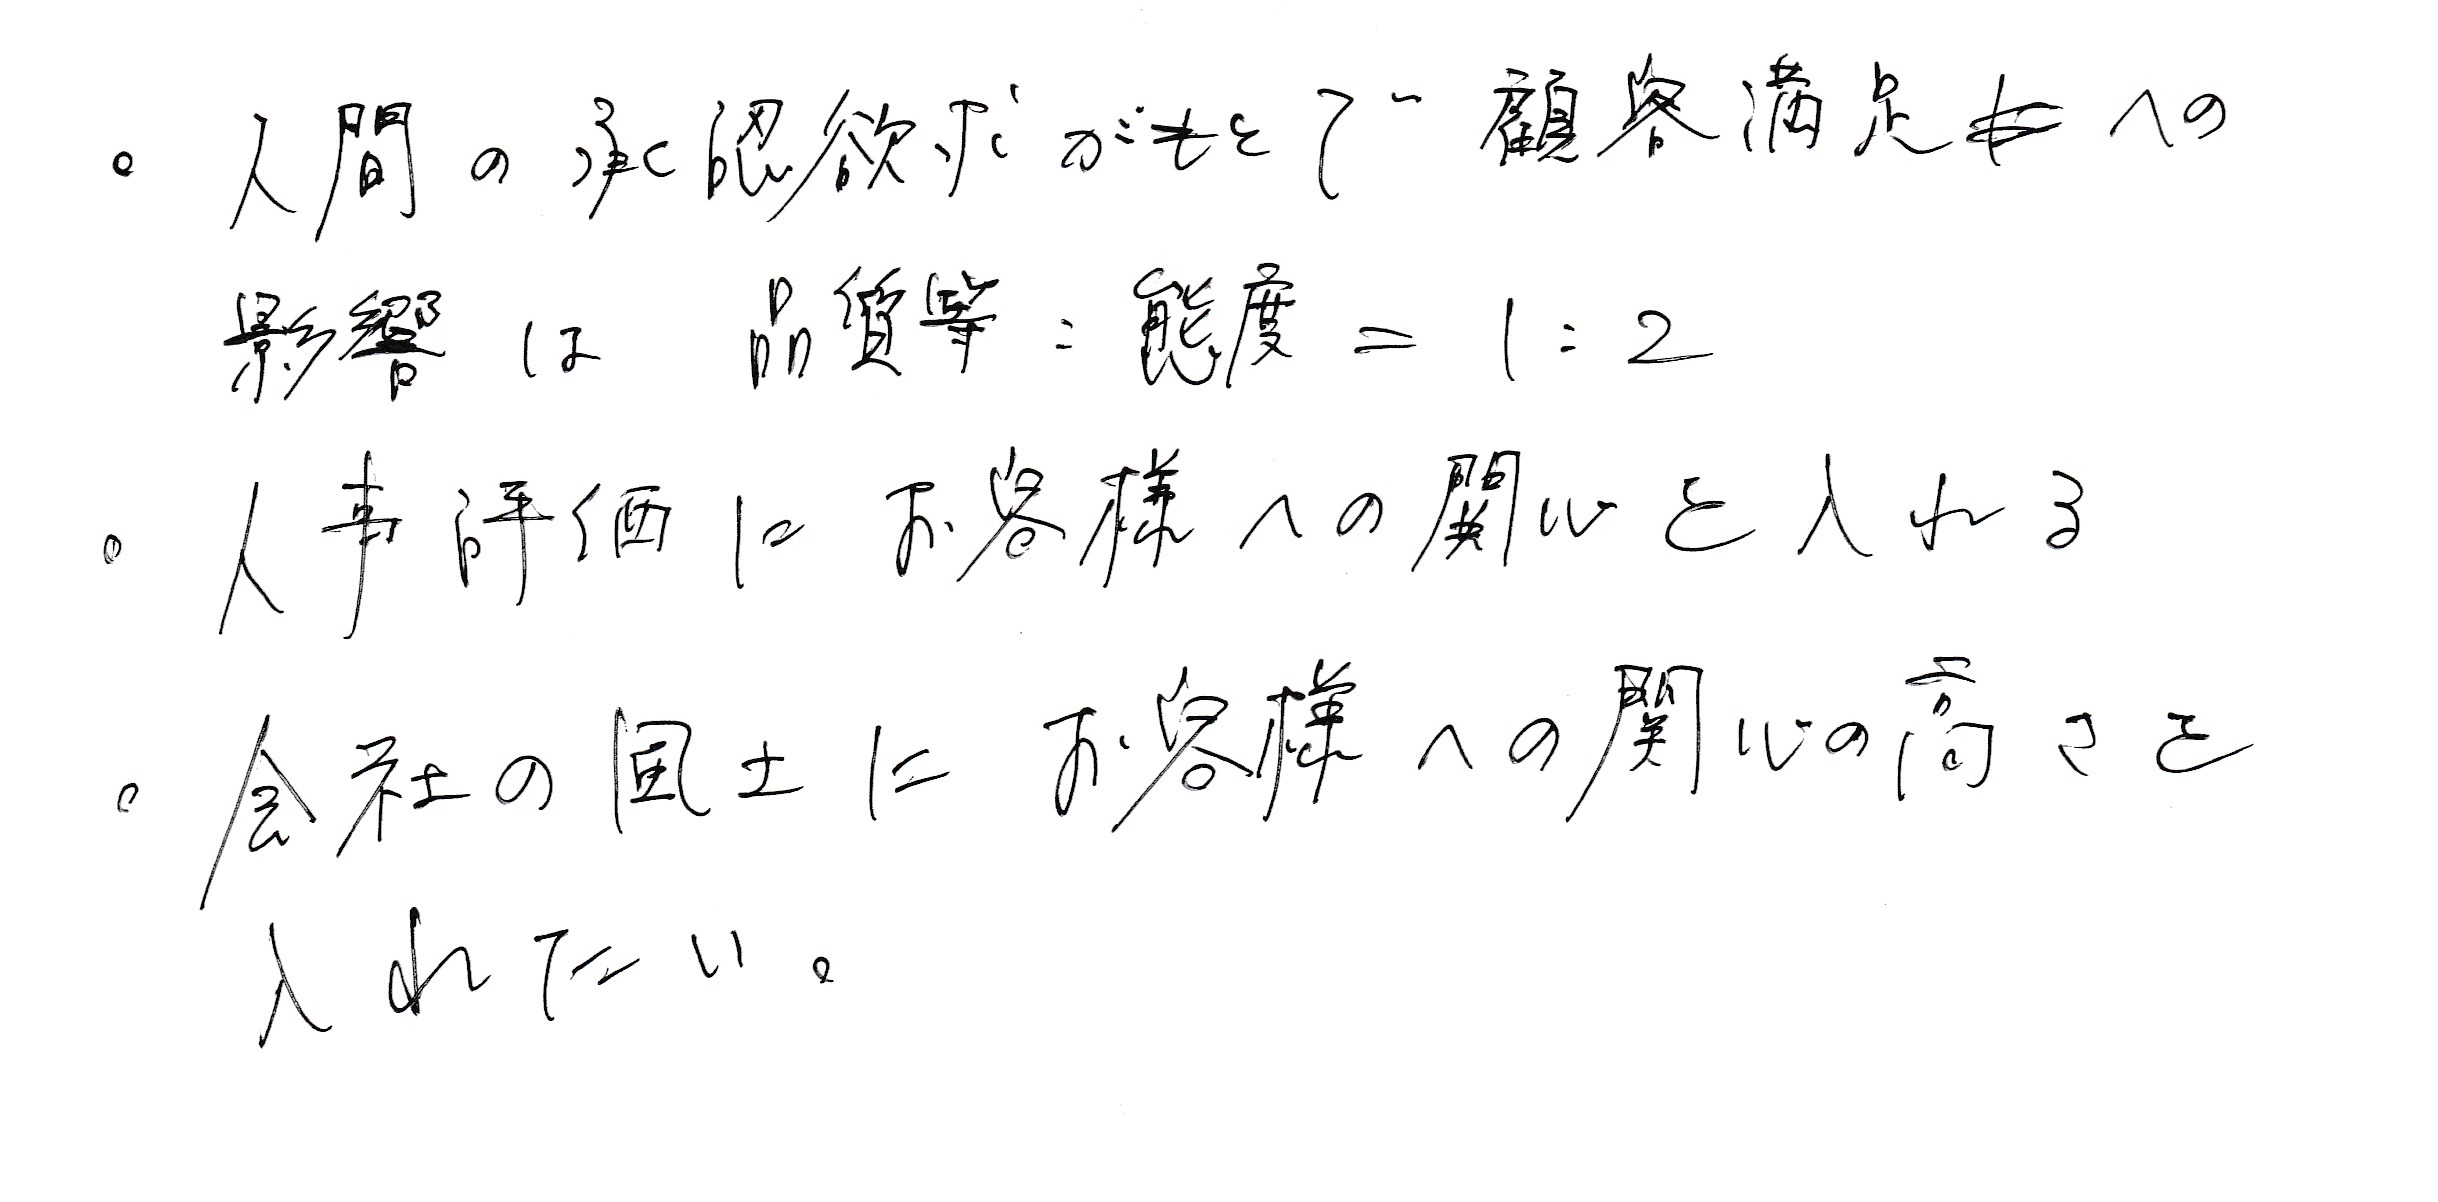 。人間の承認欲求がもとで顧客満足への
影響は 品質等:態度=1:2
。人事評価にお客様への関心を入れる
。会社の風土にお客様への関心の高さを
入れてたい。